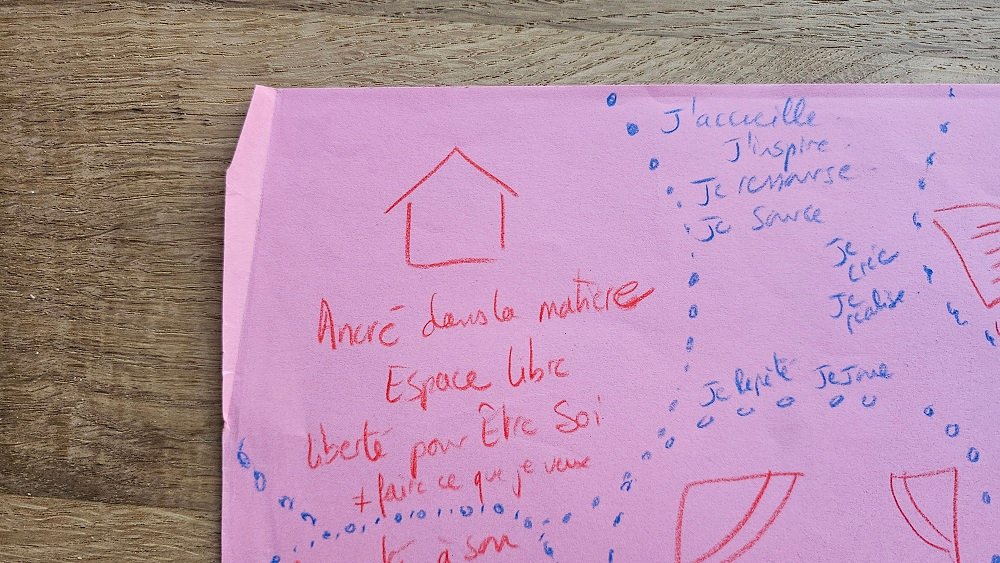 Ancré dans la matière
Espace libre
liberté pour Être Soi
≠ faire ce que je veux
à son
J'accueille
J'inspire
Je ressource
Je source
Je
crée
Je
réalise
Je répète Je Joue